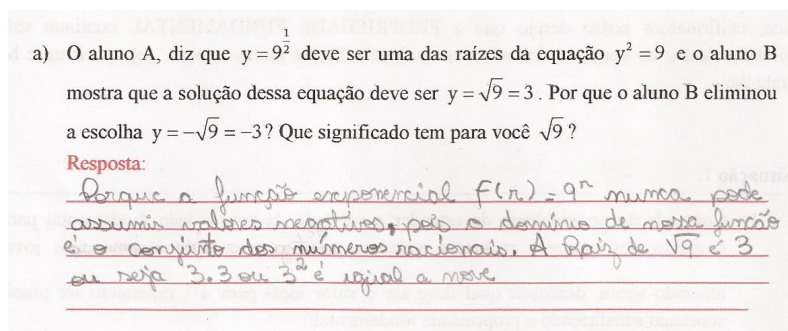 a) O aluno A, diz que y = 9^{1/2} deve ser uma das raízes da equação y² = 9 e o aluno B
mostra que a solução dessa equação deve ser y = √9 = 3. Por que o aluno B eliminou
a escolha y = −√9 = −3? Que significado tem para você √9?
Resposta:
Porque a função exponencial f(r) = 9^r nunca pode
assumir valores negativos, pois o domínio de nossa função
é o conjunto dos números racionais. A Raiz de √9 é 3
ou seja 3.3 ou 3² é igual a nove